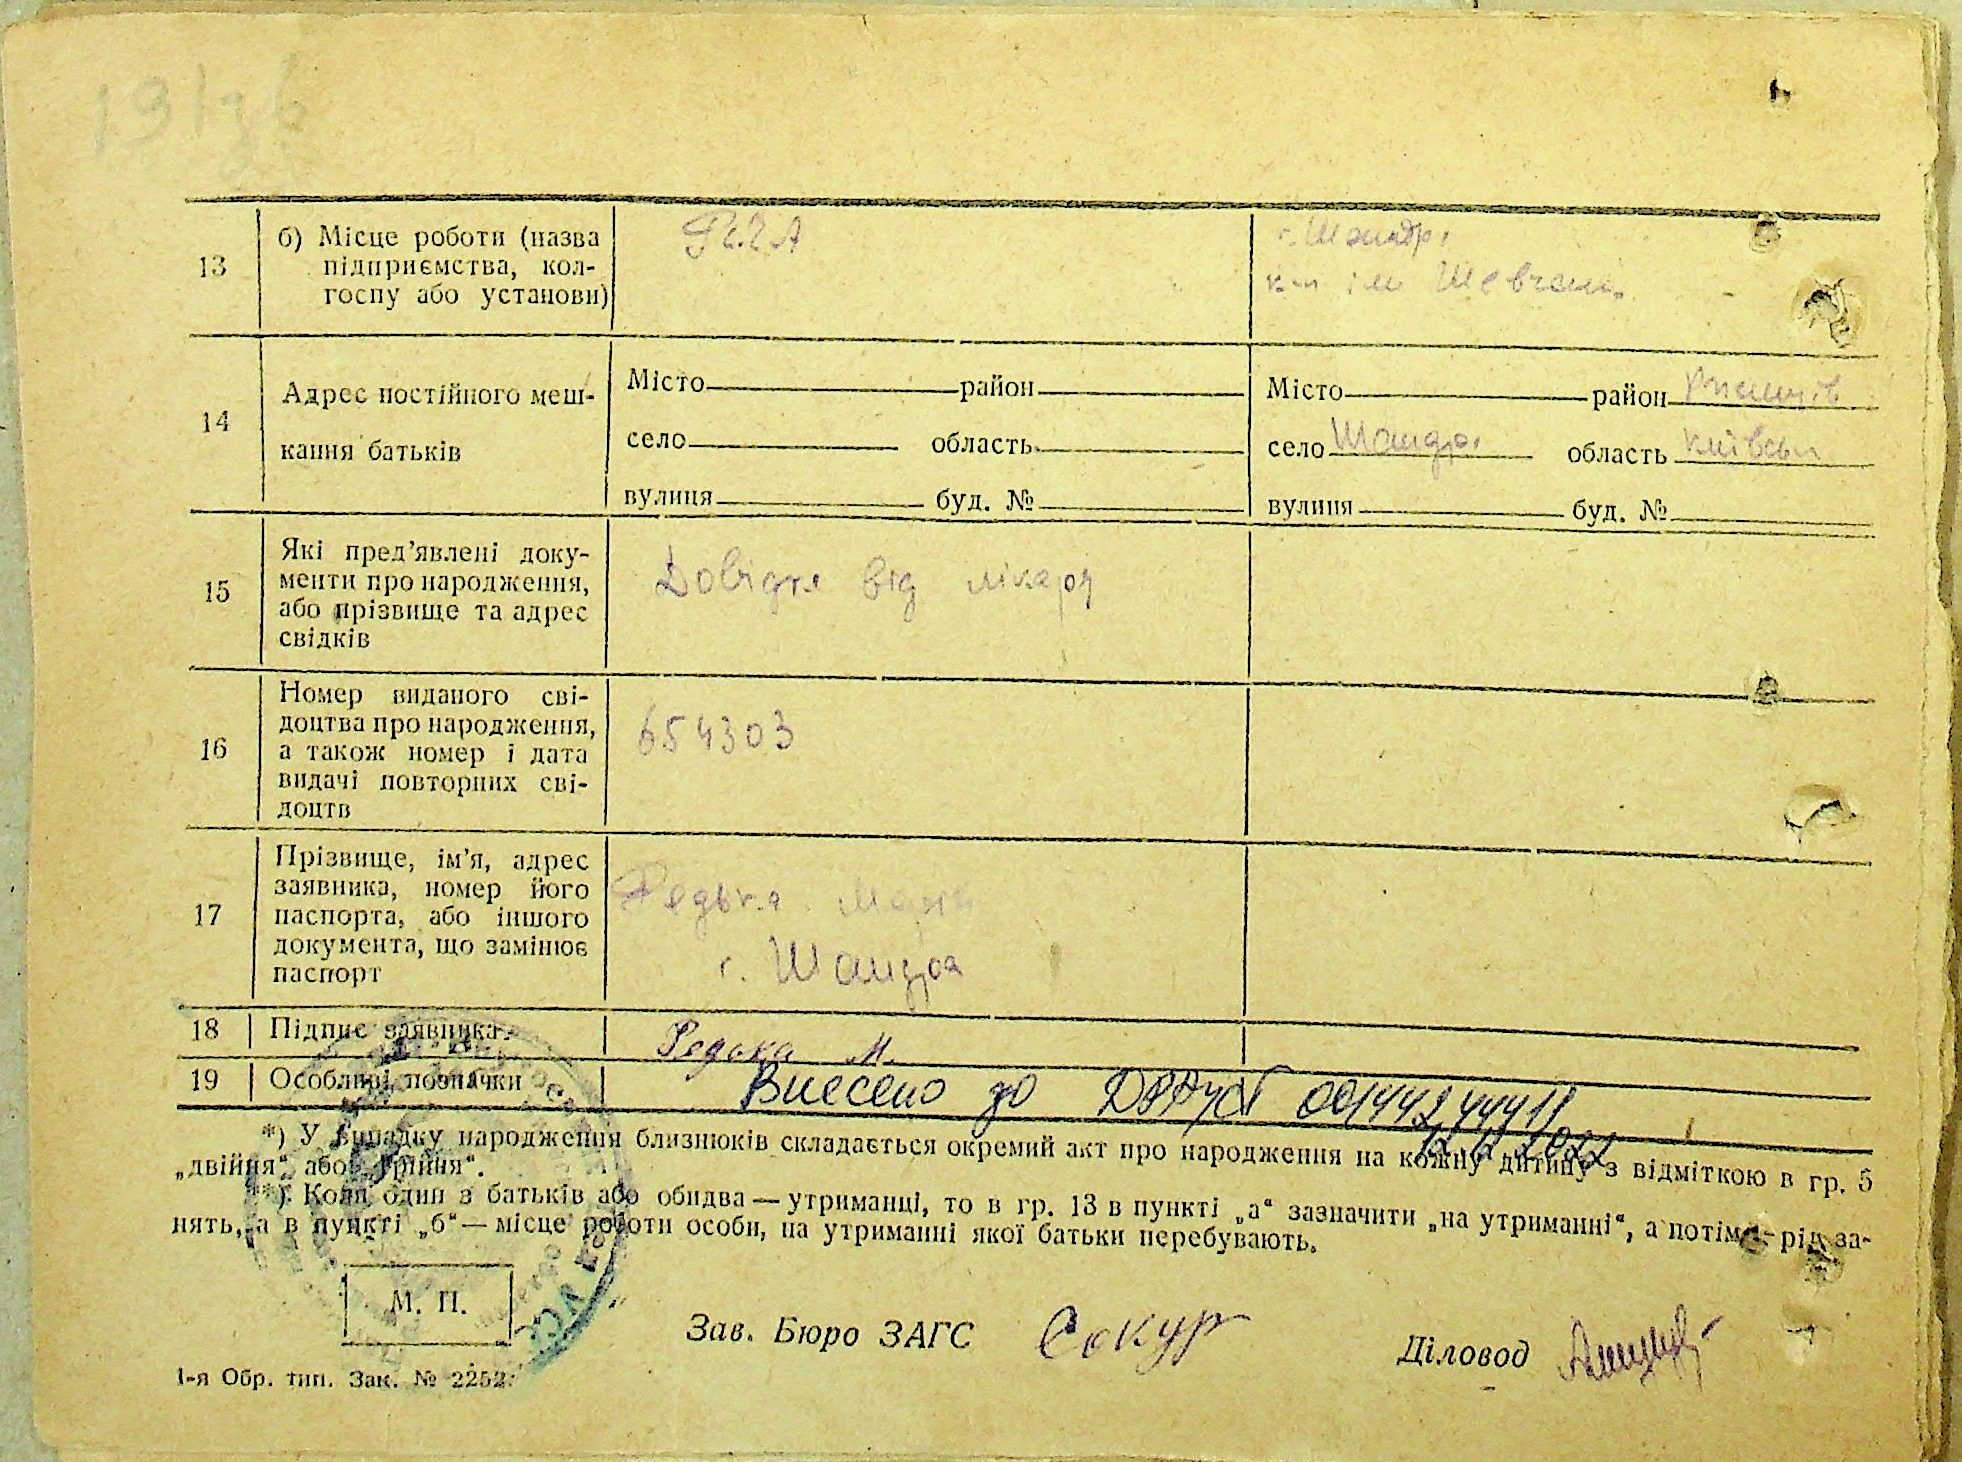 13
б) Місце роботи (назва
підприємства, кол-
госпу або установи)
РККА
с. Шандра
к-п ім Шевченк.
14
Адрес постійного меш-
кання батьків
Місто район
село область
вулиця буд. №
Місто район
село Шандра область Київськ
вулиця буд. №
15
Які пред’явлені доку-
менти про народження,
або прізвище та адрес
свідків
Довідка від лікаря
16
Номер виданого сві-
доцтва про народження,
а також номер і дата
видачі повторних сві-
доцтв
654303
17
Прізвище, ім’я, адрес
заявника, номер його
паспорта, або іншого
документа, що замінює
паспорт
Редька Марія
с. Шандра
18 Підпис заявника
Редька М.
19 Особливі позначки
Внесено до ДРАЦСГ
12.12.2022
*) У випадку народження близнюків складається окремий акт про народження на кожну дитину з відміткою в гр. 5
„двійня“ або „трійня“.
**) Коли один з батьків або обидва — утриманці, то в гр. 13 в пункті „а“ зазначити „на утриманні“, а потім — рід за-
нять, а в пункті „б“ — місце роботи особи, на утриманні якої батьки перебувають.
М. П.
Зав. Бюро ЗАГС Сокур
Діловод
1-я Обр. тип. Зак. № 2252.